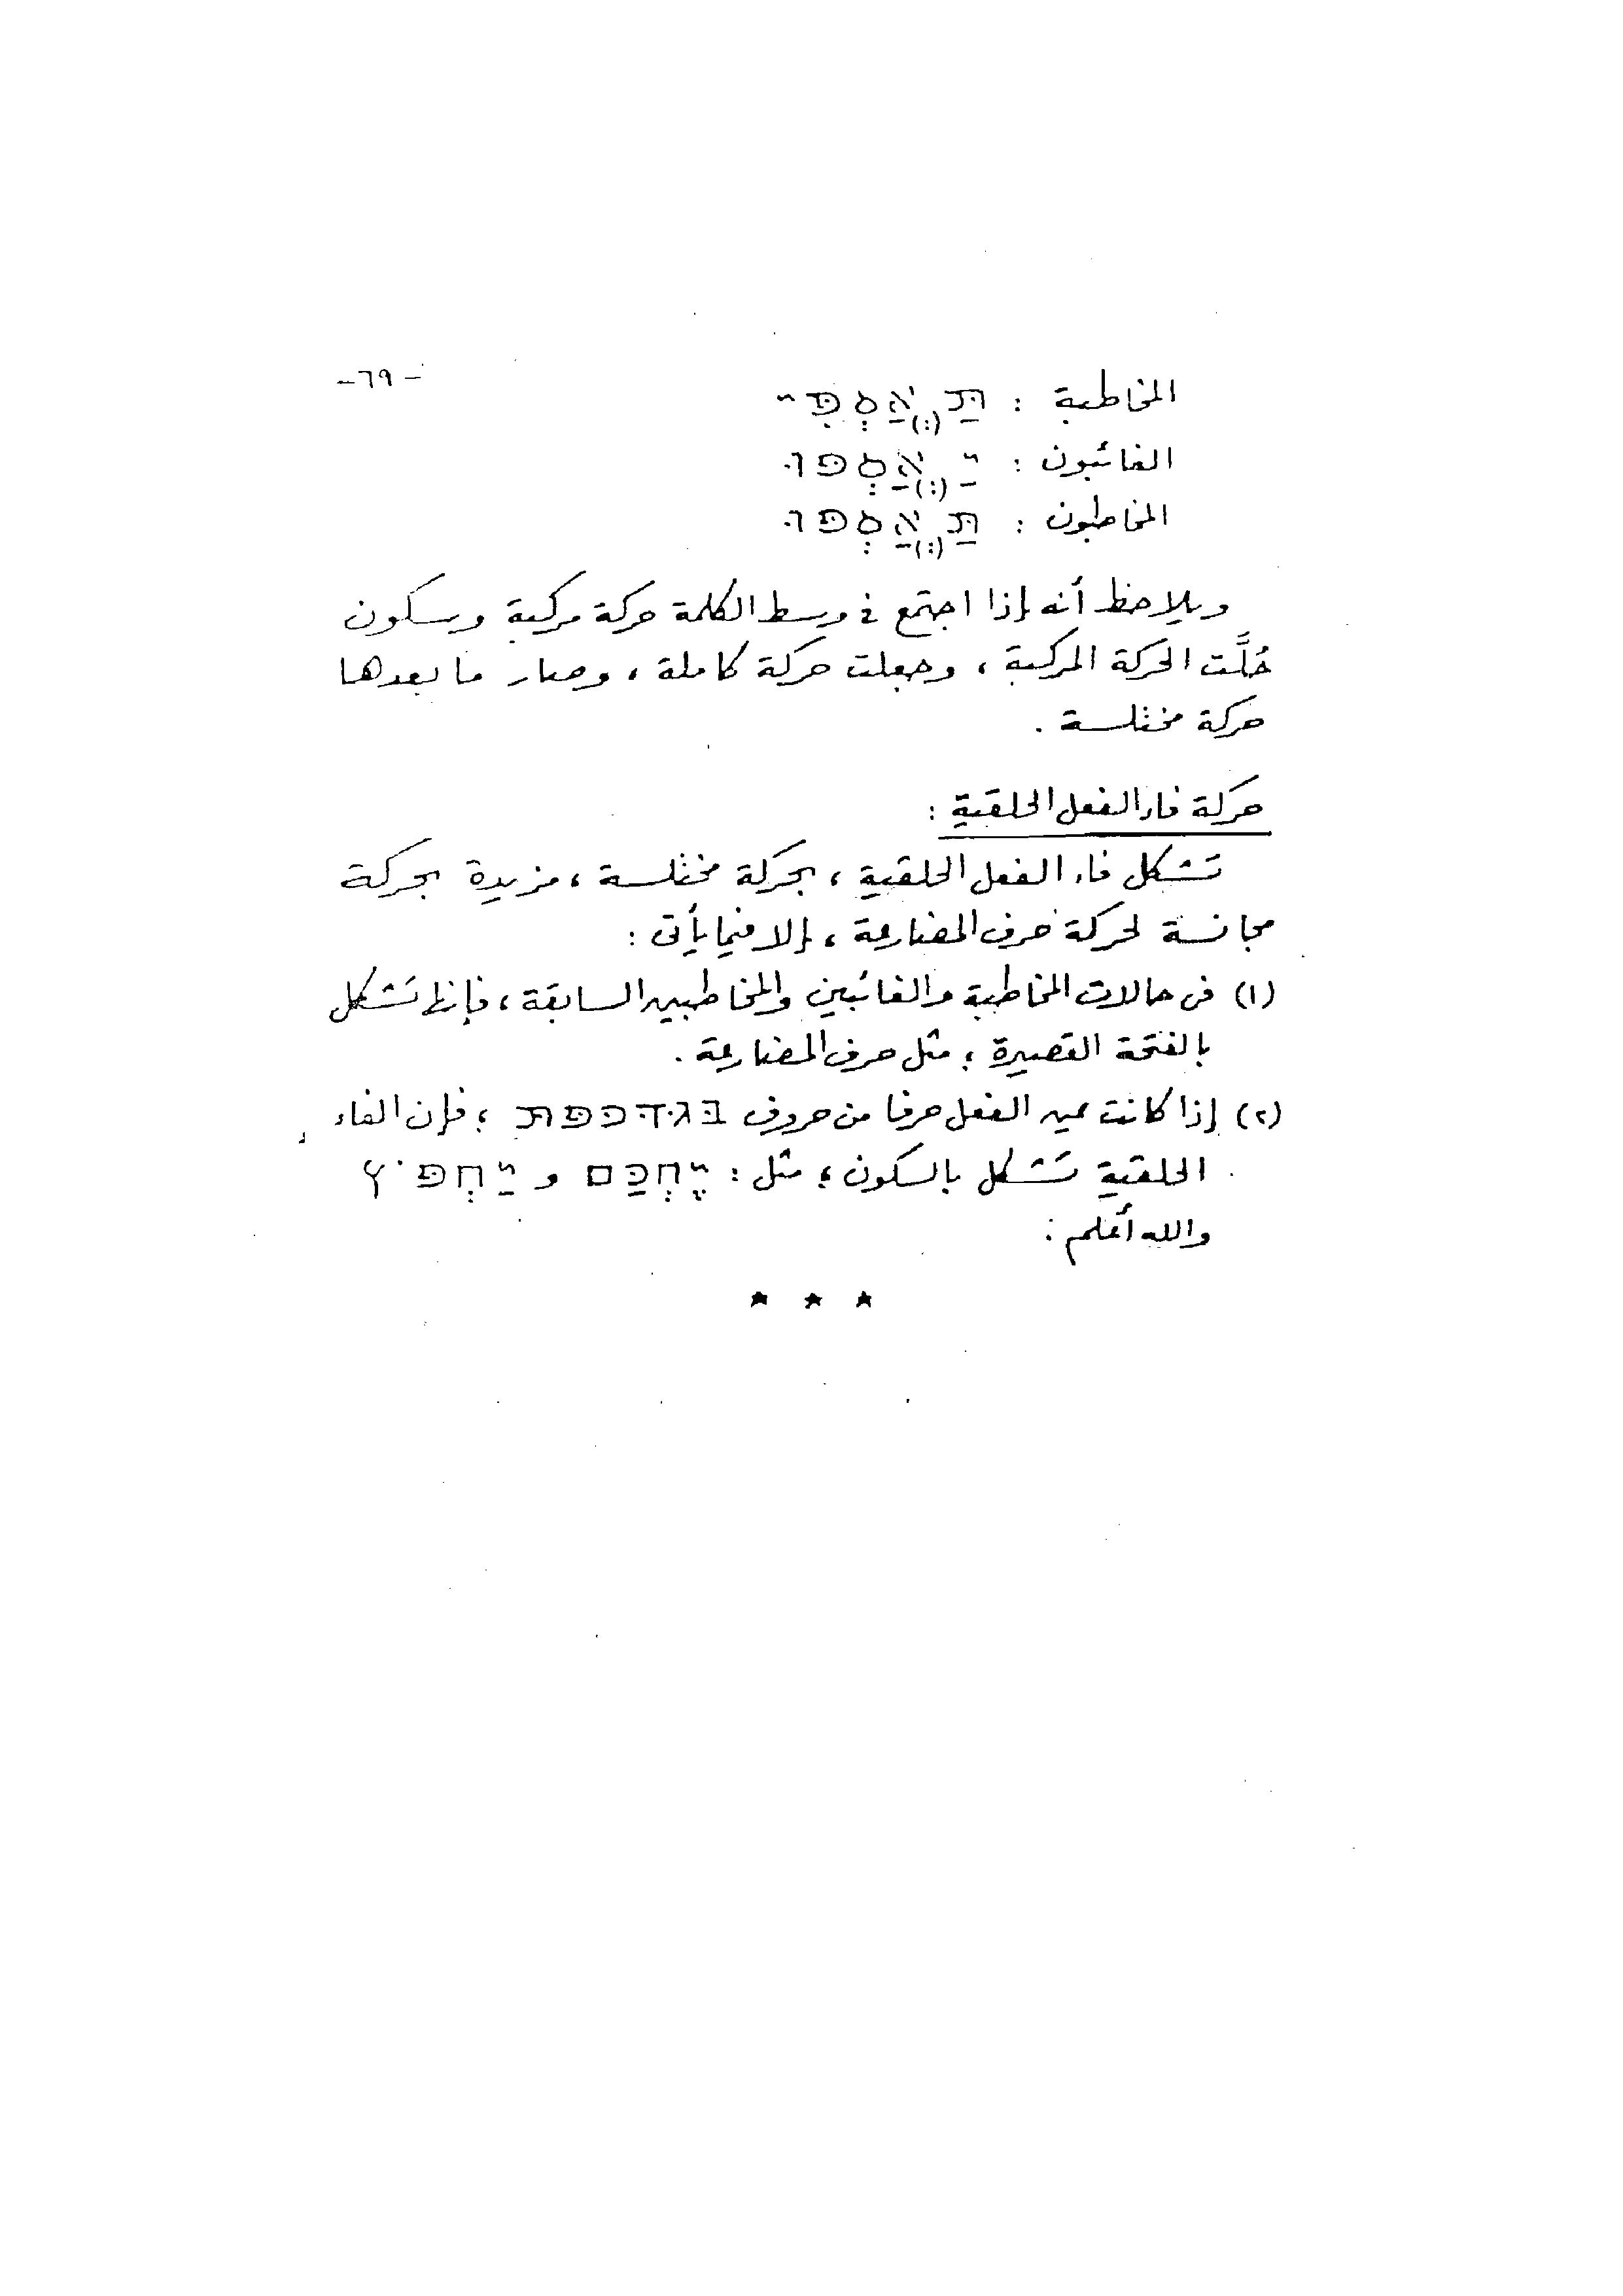 -٦٩-
المخاطبة : תַּ(ֲ)אַסְפִּי
الغائبون : יַ(ֲ)אַסְפוּ
المخاطبون : תַּ(ֲ)אַסְפוּ
ويلاحظ أنه إذا اجتمع فى وسط الكلمة حركة مركبة وسكون
حُلَّت الحركة المركبة ، وجعلت حركة كاملة ، وصار ما بعدها
حركة مختلسة .
حركة فاء الفعل الحلقية :
تَشكل فاء الفعل الحلقية ، بحركة مختلسة ، مزيدة بحركة
مجانسة لحركة حرف المضارعة ، إلا فيما يأتى :
(١) فى حالات المخاطبة والغائبين والمخاطبين السابقة ، فإنها تَشكل
بالفتحة القصيرة ؛ مثل حرف المضارعة .
(٢) إذا كانت عين الفعل حرفا من حروف בּגּדּכּפּתּ ؛ فإن الفاء
الحلقية تَشكل بالسكون ؛ مثل : יֶחְכַּם و יַחְפֹּץ
والله أعلم .
* * *